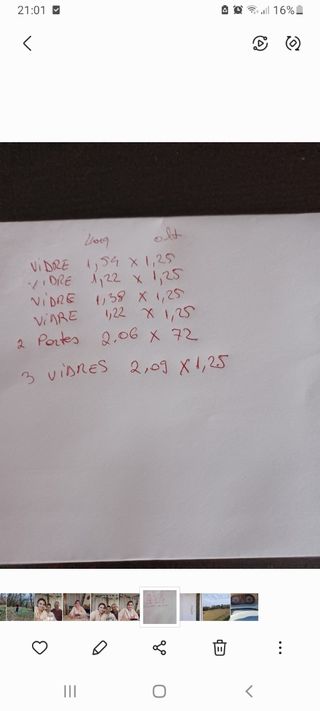 21:01
16%
Long alt
ViDRE 1,54 X 1,25
ViDRE 1,22 X 1,25
ViDRE 1,38 X 1,25
ViDRE 1,22 X 1,25
2 Portes 2.06 X 72
3 ViDRES 2,09 X 1,25